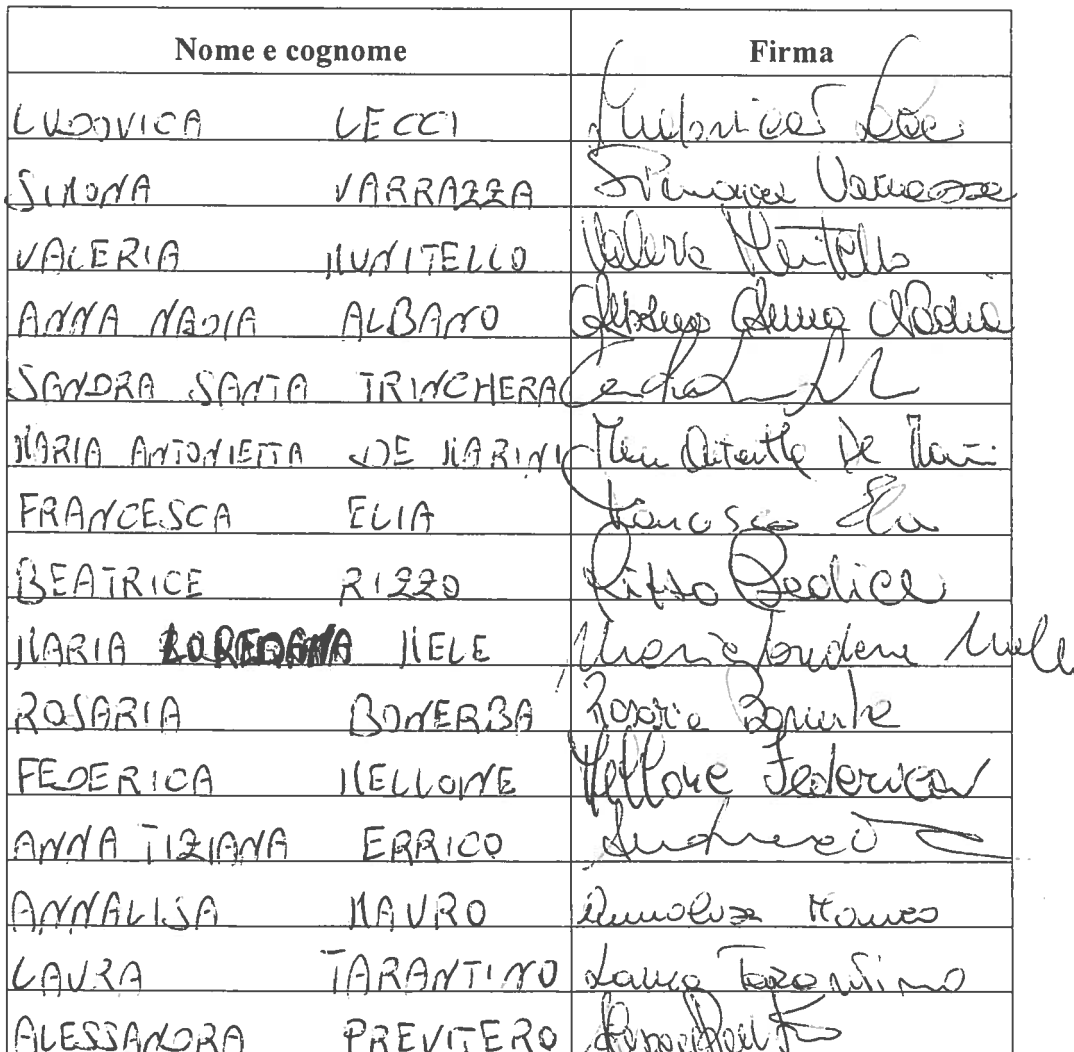 Nome e cognome Firma
LUDOVICA LECCI Ludovica Lecci
SIMONA VARRAZZA Simona Varrazza
VALERIA MUNITELLO Valeria
ANNA NADIA ALBANO Albano Anna Nadia
SANDRA SANTA TRINCHERA
MARIA ANTONIETTA DE MARINI De Marini
FRANCESCA ELIA Francesca Elia
BEATRICE RIZZO Rizzo Beatrice
MARIA LOREDANA MELE Maria Loredana Mele
ROSARIA BONERBA Rosaria Bonerba
FEDERICA MELLONE Mellone Federica
ANNA TIZIANA ERRICO
ANNALISA MAURO Annalisa Mauro
LAURA TARANTINO Laura Tarantino
ALESSANDRA PREVITERO